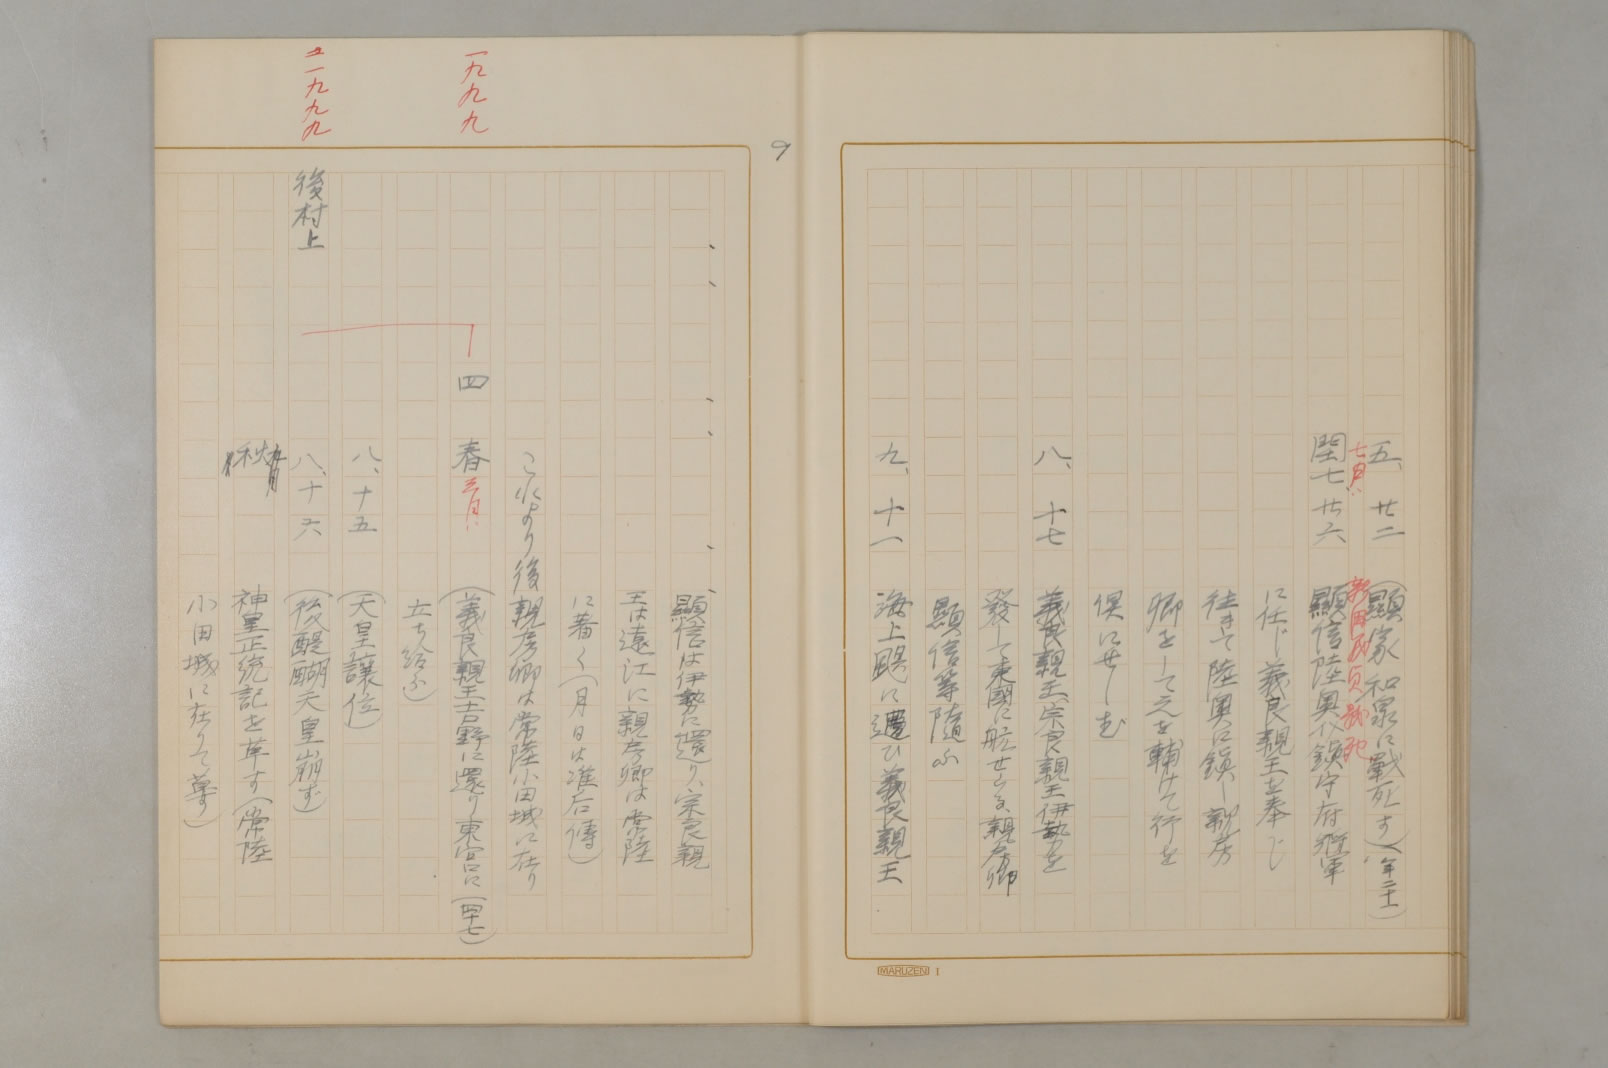 五、廿二 (顯家和泉に戰死す)(年二十一)
七月、新田義貞戰死
閏七 廿六 顯信陸奥介鎭守府將軍
に任じ義良親王を奉じ
往きて陸奥に鎭し親房
卿をして之を輔けて行を
倶にせしむ
八、十七 義良親王、宗良親王伊勢を
發して東國に航せらる、親房卿
顯信等隨ふ
九、十一 海上颶に遭ひ義良親王
MARUZEN I
顯信は伊勢に還り、宗良親
王は遠江に親房卿は常陸
に著く(月日は准后傳)
これより後親房卿は常陸小田城に在り
一九九九
四 春三月、(義良親王吉野に還り東宮に(四十七)
立ち給ふ)
八、十五 (天皇讓位)
一九九九
後村上
八、十六 (後醍醐天皇崩ず)
秋 神皇正統記を草す(常陸
小田城に在りて草す)